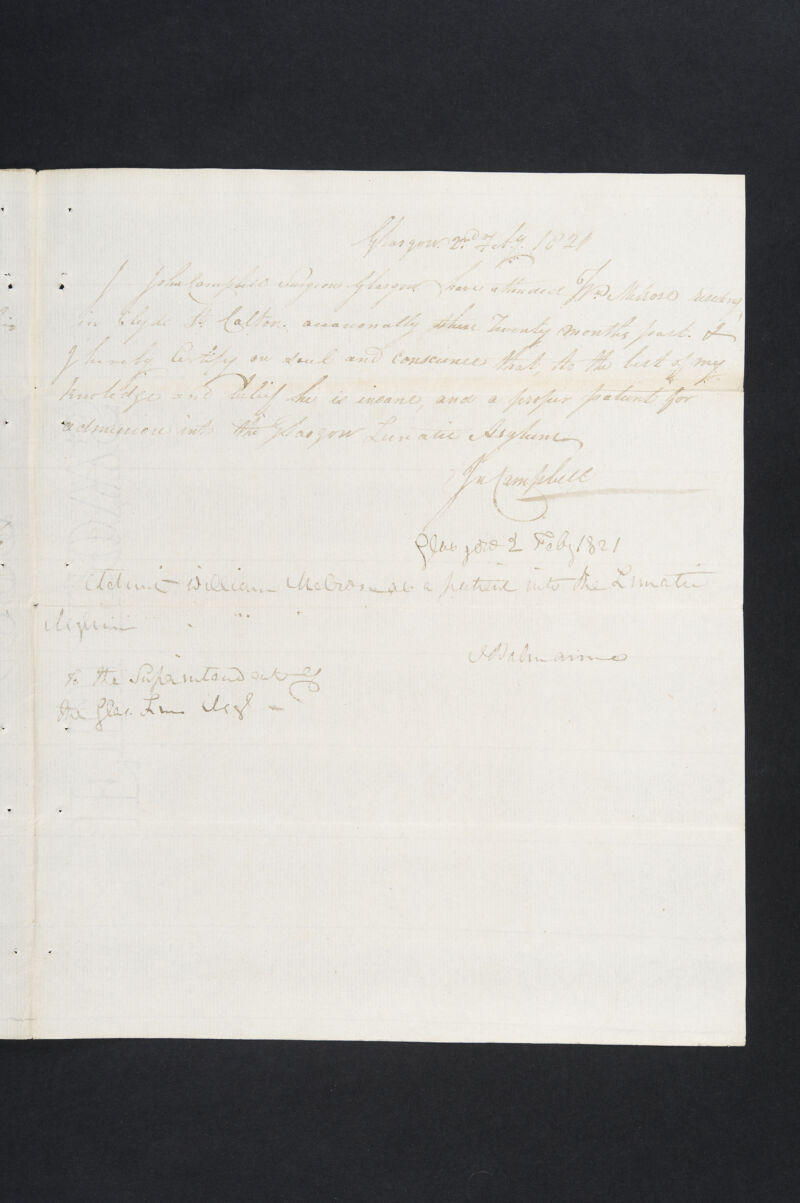 Glasgow 2nd Feby. 1821
I John Campbell Surgeon Glasgow have attended Wm. Melrose residing
in Clyde St. Calton. occasionally these Twenty months past. &
I hereby Certify on soul and conscience that, to the best of my
knowledge and belief he is insane, and a proper patient for
admission into the Glasgow Lunatic Asylum
Jn Campbell
Glasgow 2 Feby 1821
Admit William Melrose as a patient into the Lunatic
Asylum
J Balmanno
To the Superintendent of
the Glas. Lun. Asyl